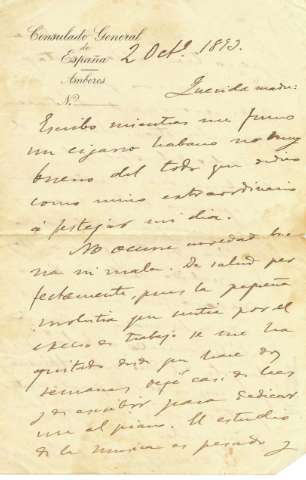 Consulado General
de
España
Amberes
Nº
2 Octe. 1893.
Querida madre:
Escribo mientras me fumo
un cigarro habano no muy
bueno del todo que
como extraordinario
á festejar mi dia.
No ocurre novedad bue
na ni mala. De salud per
fectamente, pues la pequeña
molestia que sentia por el
exceso de trabajo se me ha
quitado desde que hace dos
semanas dejé casi de leer
y de escribir para dedicar
me al piano. El estudio
de la musica es pesado y